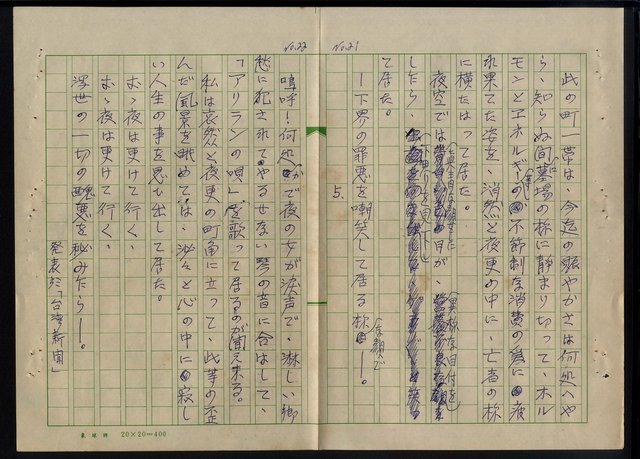 No.21
此の町一帯は、今迄の賑やかさは何処へや
ら、知らぬ間に墓場の様に静まり切って、ホル
モンとエネルギーの不節制な消費の為に疲
れ果てた姿を、消然と夜更の中に、亡者の様
に横たはって居た。
夜空では、星が、異様な目付を
したら、下界を見下し
て居た。
―下界の罪悪を嘲笑して居る様な顔で―。
5.
No.22
嗚呼!何処かで夜の女が涙声で、淋しい郷
愁に犯されてやるせない琴の音に合はして、
「アリランの唄」を歌って居るのが聞え来る。
私は哀然と夜更の町角に立って、此等の歪
んだ風景を眺めては、泌々と心の中に寂し
い人生の事を思ひ出して居た。
おゝ夜は更けて行く、
おゝ夜は更けて行く、
浮世の一切の醜悪を秘みたら―。
発表於「台湾新聞」
象球牌 20×20=400